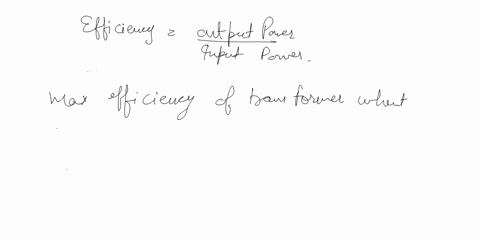 Efficiency = output Power
Input Power.
Max efficiency of transformer when